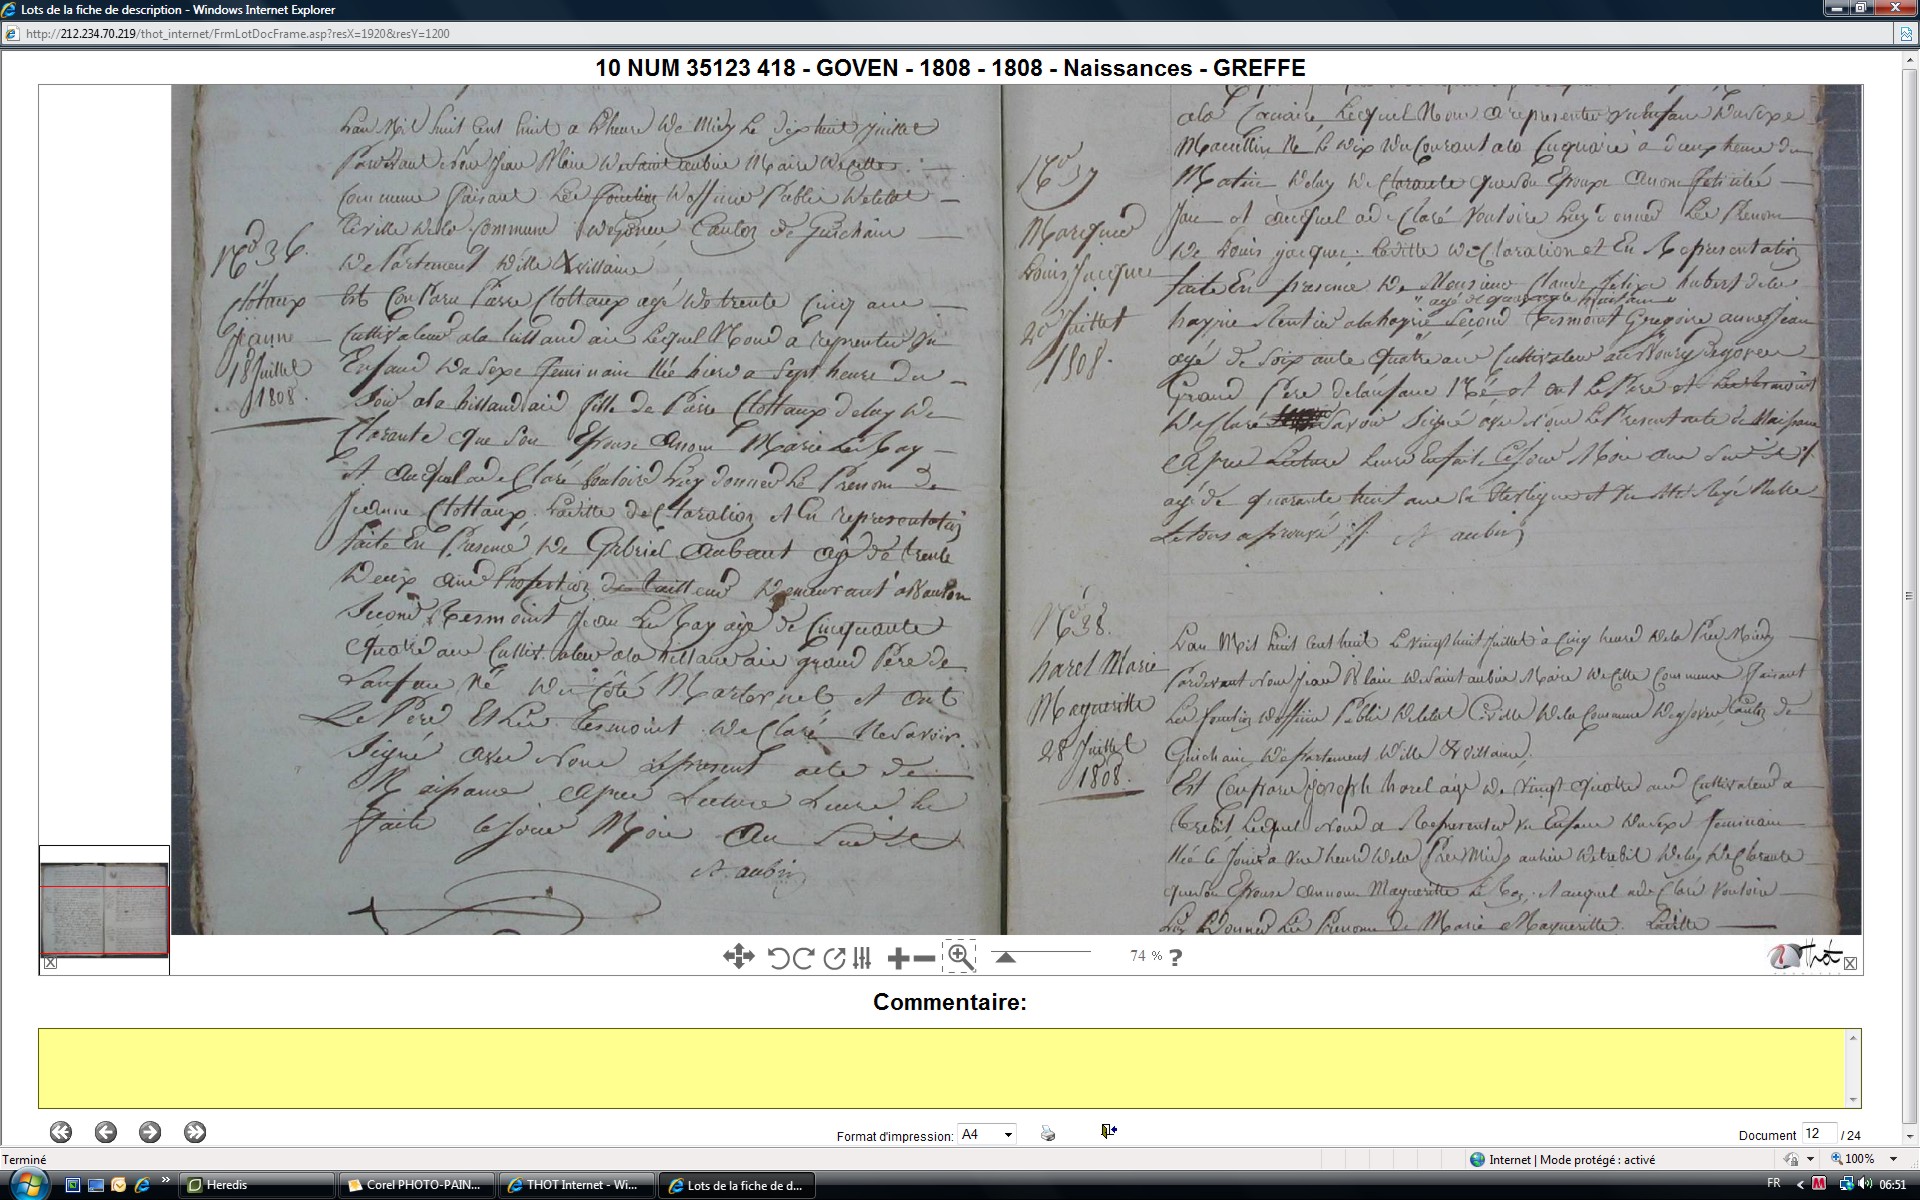 Lots de la fiche de description - Windows Internet Explorer
http://212.234.70.219/thot_internet/FrmLotDocFrame.asp?resX=1920&resY=1200
10 NUM 35123 418 - GOVEN - 1808 - 1808 - Naissances - GREFFE
Lan Mil huit Cent huit a Lheure de Midy Le dix huit juillet
Pardevant Nous Jean Blaise de Saint aubin Maire de Cette
Commune faisant Les fonction dofficier Public de letat
Civille de la Commune de goven Canton de Guichain
departement dille & villaine
No 36.
Clotaux
Jeanne
18 Juillet
1808.
Est Comparu Pierre Clottaux agé de trente Cinq ans
Cultivateur a la Lequel Nous a
Enfant du Sexe feminain Née hiere a Sept heure du
Soir a la fille de Pierre Clottaux de luy de
Clarante que Son Epouse a nom Marie Le Ray
et auquel a de Claré vouloire Luy donner Le Prenom de
Jeanne Clottaux. La ditte de Claration et En representation
faite En Presence de Gabriel aubaut agé de trente
Deux ans Profession de tailleur Demeurant a
Second Tesmoint Jean Le Ray agé de Cinquante
Quatre ans Cultivateur a la grand Pere de
Lanfant Né du Côté Maternel et ont
Le Pere et Les Tesmoint de Claré Ne Savoir
Signé avec Nous le present acte de
Naissance apres Lecture Leure
faite Le Jour Mois an Sus dit
St aubin
a la Lequel Nous a representer un Enfant du Sexe
Masculin Né Le dix du Courant a la a deux heure du
Matin de luy de Clarante que Son Epouse a nom felicité
No 37
Louis Jacque
20 Juillet
1808.
et auquel a de Claré Vouloire Luy donner Les Prenom
de Louis jacque. La ditte de Claration et En Representation
faite En presence de Monsieur Claude felix hubert de la
agé de quarante huit ans
Second Tesmoint Gregoire
agé de Soixante Quatre ans Cultivateur au de goven
Grand Pere de lenfant Né et ont Le Pere et Les tesmoint
de Claré Savoir Signé avec Nous Le Present acte de Naissance
apres Lecture Leure Enfaite Ce Jour Mois an Sus dit
agé de quarante huit ans
aprouvé St aubin
No 38.
harel Marie
Margueritte
28 Juillet
1808.
Lan Mil huit Cent huit Le vingt huit Juillet à Cinq heure de la Pres Midy
Pardevant Nous Jean Blaise de Saint aubin Maire de Cette Commune faisant
Les fonction dofficier Public de letat Civille de la Commune de goven Canton de
Guichain departement dille & villaine
Est Comparu joseph harel agé de vingt Quatre ans Cultivateur a
trebit Lequel Nous a Representer un Enfant du Sexe feminain
Née Ce Jour a une heure de la Pres Midy au lieu de trebit de luy de Clarante
que Son Epouse a nom Margueritte Le Ray. et auquel a de Claré Vouloire
Luy Donner Les Prenom de Marie Margueritte. La ditte
74 % ?
Thot
Commentaire:
Format d'impression: A4
Document 12 / 24
Terminé
Internet | Mode protégé : activé
100%
Heredis
Corel PHOTO-PAIN...
THOT Internet - Wi...
Lots de la fiche de d...
FR
06:51